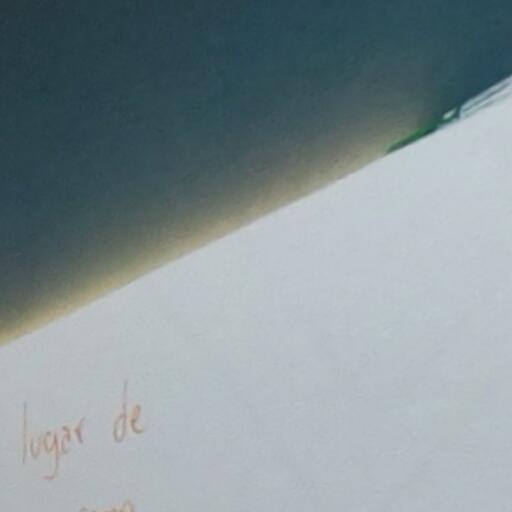 lugar de